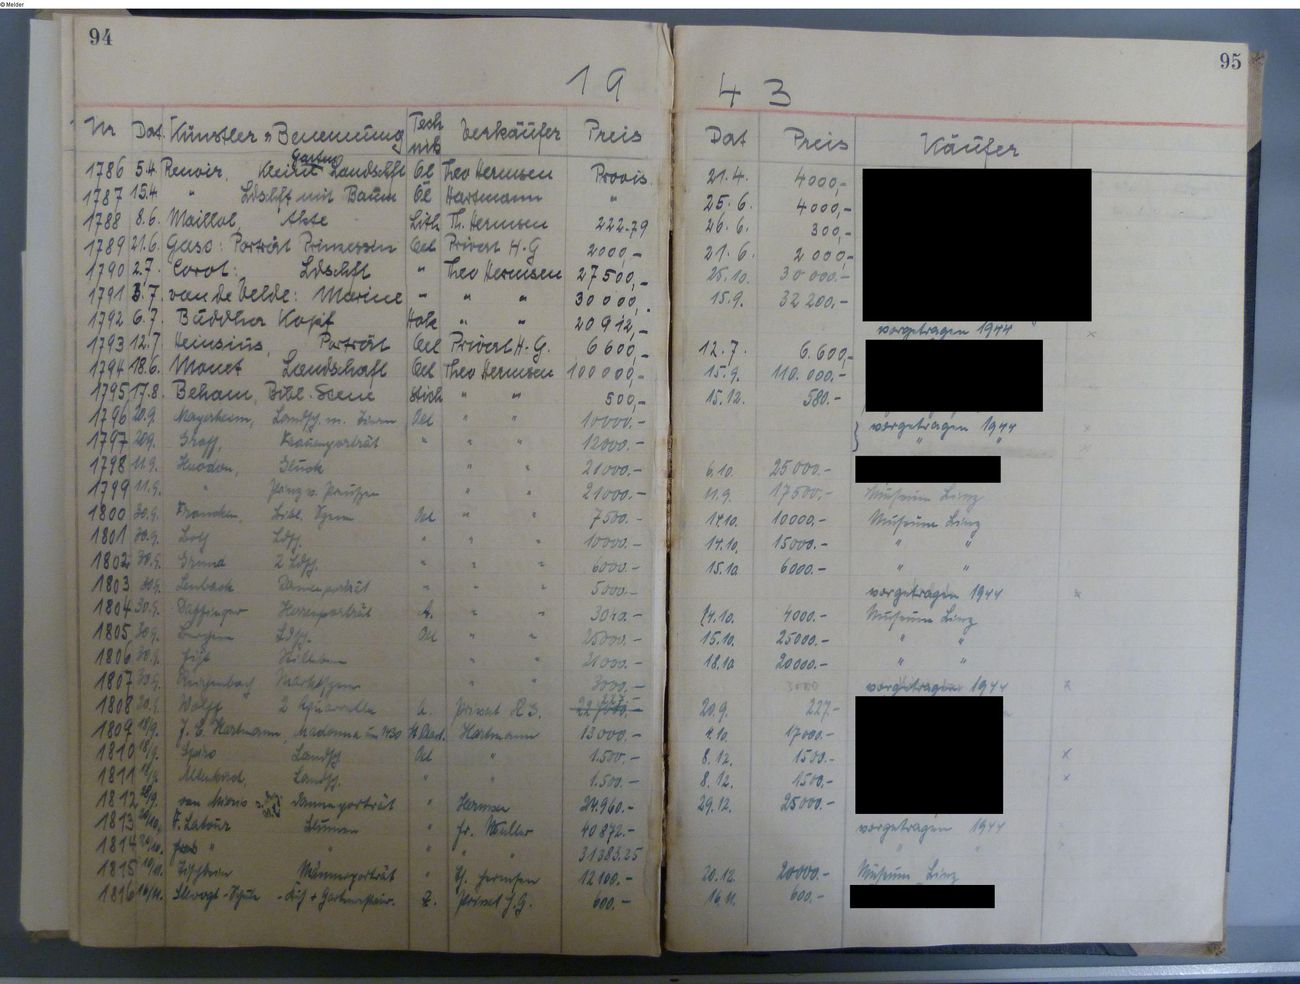 © Melder
94
95
19 43
Nr Dat. Künstler u Benennung Technik Verkäufer Preis Dat Preis Käufer
1786 5.4. Renoir, kleine Garten Landschaft Oel Theo Hermsen Provis. 21.4. 4000,-
1787 15.4. " Ldschft mit Baum Öl Hartmann " 25.6. 4000,-
1788 8.6. Maillol, Akte Lith. Th. Hermsen 222.79 26.6. 300,-
1789 21.6. : Porträt Prinzessin Oel Privat H.G 2000,- 21.6. 2000,-
1790 2.7. Corot: Ldschft " Theo Hermsen 27500,- 25.10. 30000.-
1791 3.7. van de Velde: Marine " " " 30000,- 15.9. 32200.-
1792 6.7. Buddha Kopf Holz " " 20912,- vorgetragen 1944 x
1793 12.7. Heinsius, Porträt Oel Privat H.G. 6600,- 12.7. 6.600,-
1794 18.6. Monet Landschaft Oel Theo Hermsen 100000,- 15.9. 110.000.-
1795 17.8. Beham, Bibl. Scene Stich " " 500,- 15.12. 580.-
1796 20.9. Meyerheim, Landsch. m. Oel " " 10000.- vorgetragen 1944 x
1797 20.9. Graff, Frauenporträt " " " 12000.- " " x
1798 11.9. Houdon, Gluck " " 21000.- 6.10. 25000.-
1799 11.9. " Prinz v. Preußen " " 21000.- 11.9. 17500.- Museum Linz
1800 30.9. Francken, Bibl. Szene Oel " " 7500.- 14.10. 10000.- Museum Linz
1801 30.9. Ldsch. " " " 10000.- 14.10. 15000.- " "
1802 30.9. Grund 2 Ldsch. " " " 6000.- 15.10. 6000.- " "
1803 30.9. Lenbach Damenporträt " " " 5000.- vorgetragen 1944 x
1804 30.9. Daffinger Herrenporträt A. " " 3040.- 14.10. 4000.- Museum Linz
1805 30.9. Ldsch. Oel " " 25000.- 15.10. 25000.- " "
1806 30.9. Stilleben " " 21000.- 18.10. 20000.- " "
1807 30.9. Marktszene " " 3000.- 3000 vorgetragen 1944 x
1808 20.9. Wolff 2 Aquarelle A. Privat H.G. 227.- 20.9. 227.-
1809 18/9. J. C. Hartmann, Madonna um 1430 Hartmann 13000.- 4.10. 17000.-
1810 18/9. Spiro Landsch. Oel " 1.500.- 8.12. 1500.- x
1811 18/9. Landsch. " " 1.500.- 8.12. 1500.- x
1812 28/9. van Mieris Damenporträt " Hermsen 24.960.- 29.12. 25000.-
1813 F. Latour Blumen " fr. Muller 40872.- vorgetragen 1944
1814 " " " " " 31383.25 " "
1815 10/11. Tischbein Männerporträt " Th. Hermsen 12100.- 20.12. 20000.- Museum Linz
1816 16/11. Slevogt - Z. Privat H.G. 600.- 16.11. 600.-